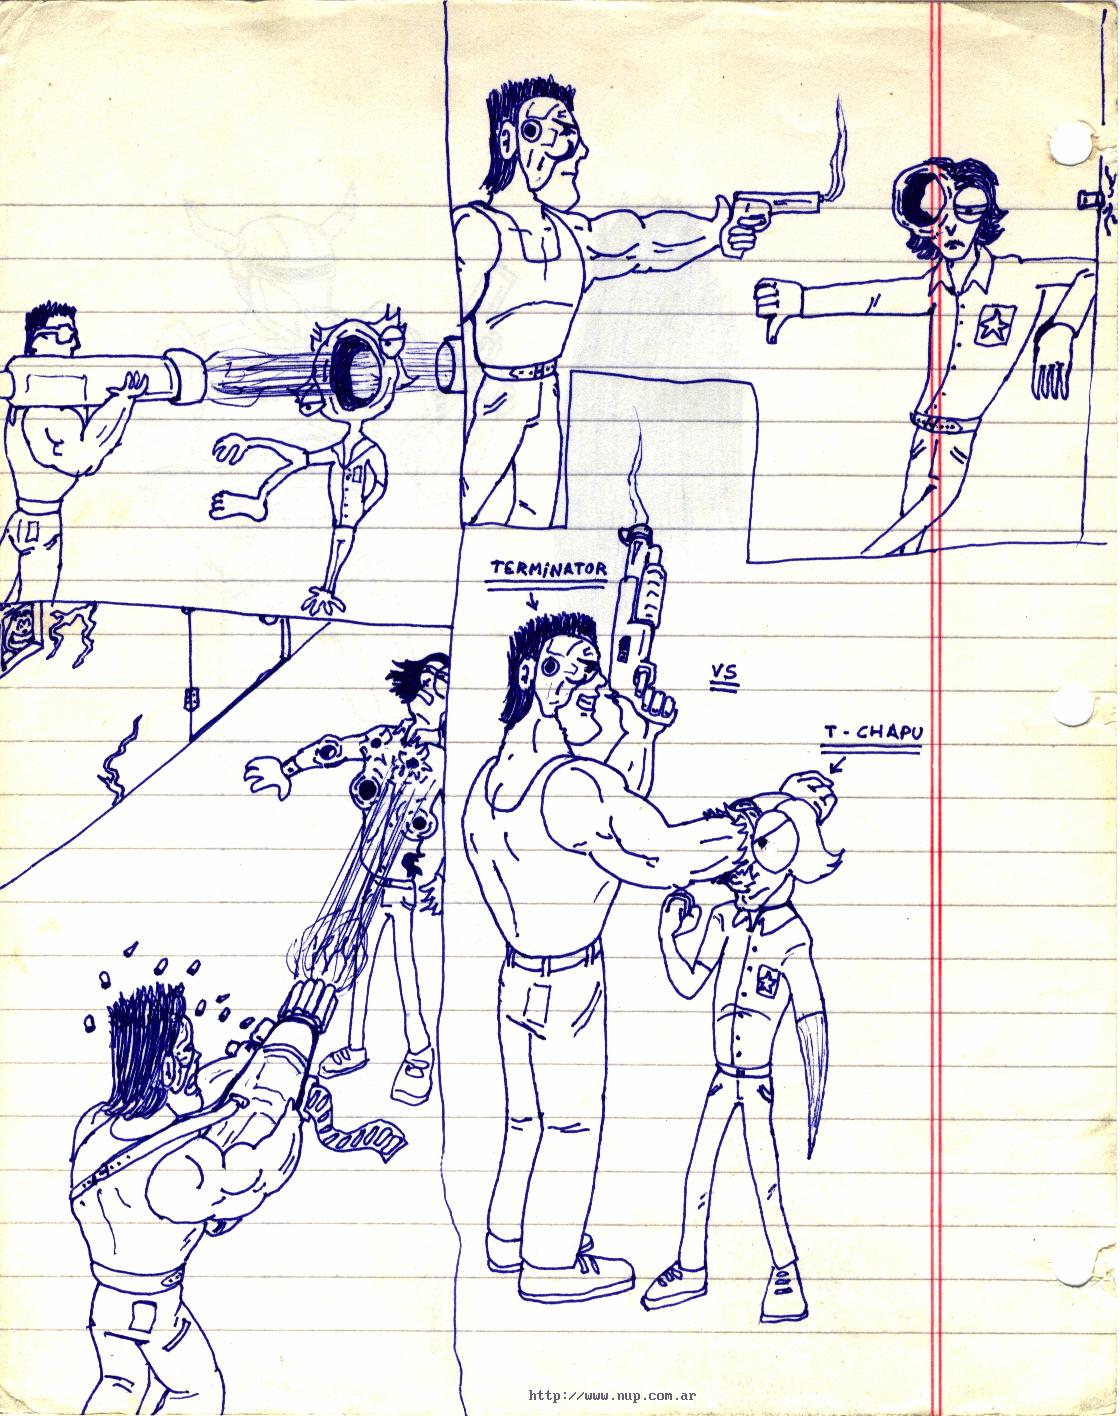 TERMiNATOR
VS
T-CHAPU
http://www.nup.com.ar